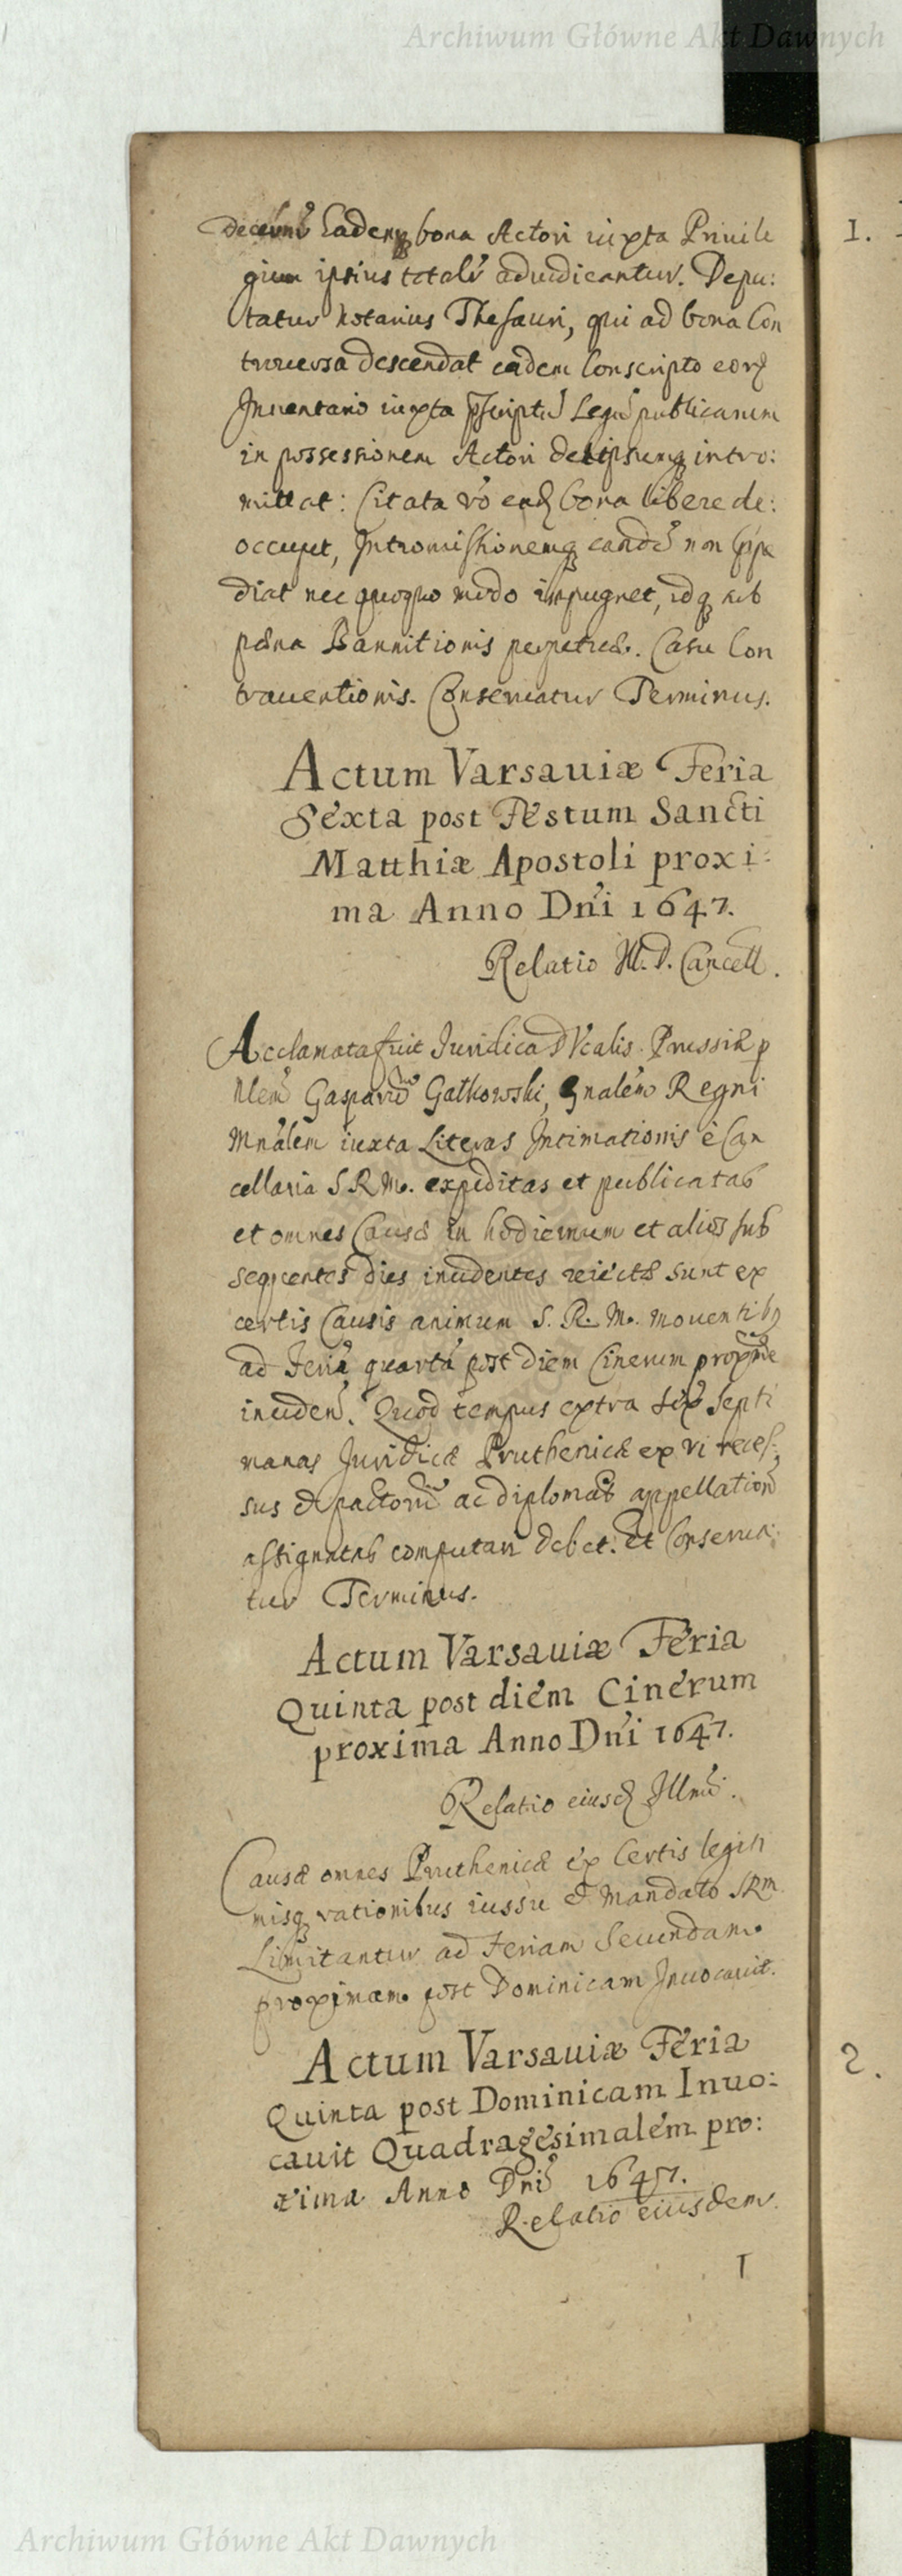 Archiwum Główne Akt Dawnych
decernit Eademq bona Actori iuxta Priuile
gium ipsius totalr adiudicantur. Depu:
tatur Notarius Thesauri, qui ad bona Con
trouersa descendat eadem Conscripto eorq
Inuentario iuxta pscriptu Legu publicarum
in possessionem Actori det ipsumq intro:
mittat: Citata vo eadq bona libere de:
occupet, Intromissionemq eande non impe
diat nec quoquo modo impugnet, idq sub
pæna Bannitionis perpetuæ. Casu Con
trauentionis. Conseruatur Terminus.
Actum Varsauiæ Feria
Sexta post Festum Sancti
Matthiæ Apostoli proxi:
ma Anno Dni 1647.
Relatio Ill. D. Cancell.
Acclamata fuit Iuridica DVcalis Prussiæ p
Nlem Gasparu Gatkowski, Gnalem Regni
Mnalem iuxta Literas Intimationis è Can
cellaria S R M. expeditas et publicatas
et omnes Causæ in hodiernum et alios sub
sequentes dies incidentes reiectæ sunt ex
certis Causis animum S. R. M. mouentibq
ad Feria quarta post diem Cinerum proxme
inciden. Quod tempus extra sex septi
manas Iuridicæ Pruthenicæ ex vi reces:
sus et pactoru ac diplomat appellation
assignatas computari debet. et Conserua:
tur Terminus.
Actum Varsauiæ Feria
Quinta post diem Cinerum
proxima Anno Dni 1647.
Relatio eiusd Illmi.
Causæ omnes Pruthenicæ ex Certis legiti
misq rationibus iussu et Mandato SRM
Limitantur ad Feriam Secundam
proximam post Dominicam Inuocauit.
Actum Varsauiæ Feria
Quinta post Dominicam Inuo:
cauit Quadragesimalem pro:
xima Anno Dni 1647.
Relatio eiusdem.
I
1.
2.
Archiwum Główne Akt Dawnych